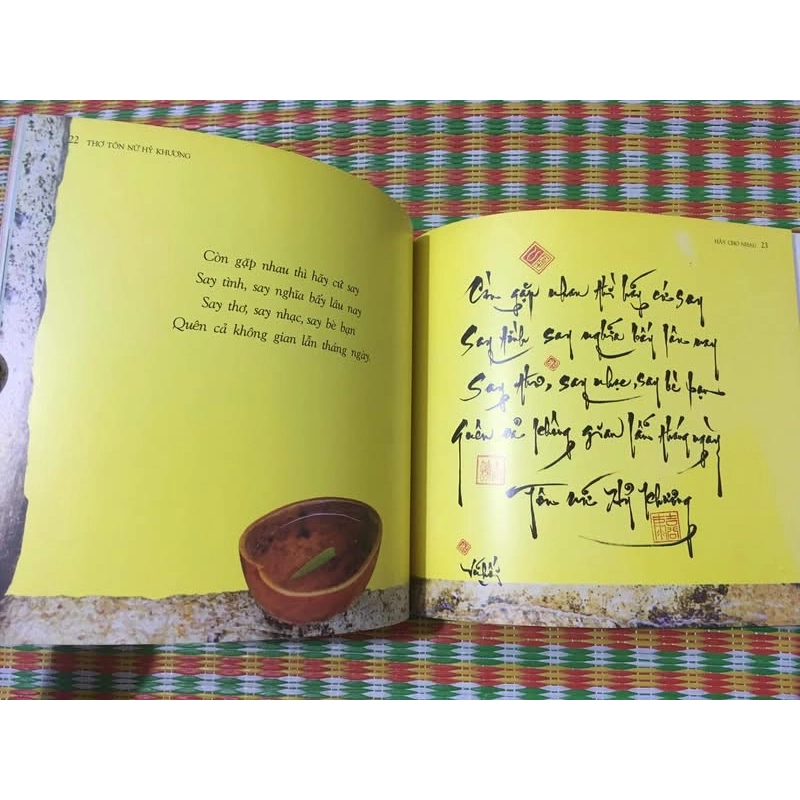 22 THƠ TÔN NỮ HỶ KHƯƠNG
Còn gặp nhau thì hãy cứ say
Say tình, say nghĩa bấy lâu nay
Say thơ, say nhạc, say bè bạn
Quên cả không gian lẫn tháng ngày.
HÃY CHO NHAU 23
Còn gặp nhau thì hãy cứ say
Say tình say nghĩa bấy lâu nay
Say thơ, say nhạc, say bè bạn
Quên cả không gian lẫn tháng ngày
Tôn nữ Hỷ Khương